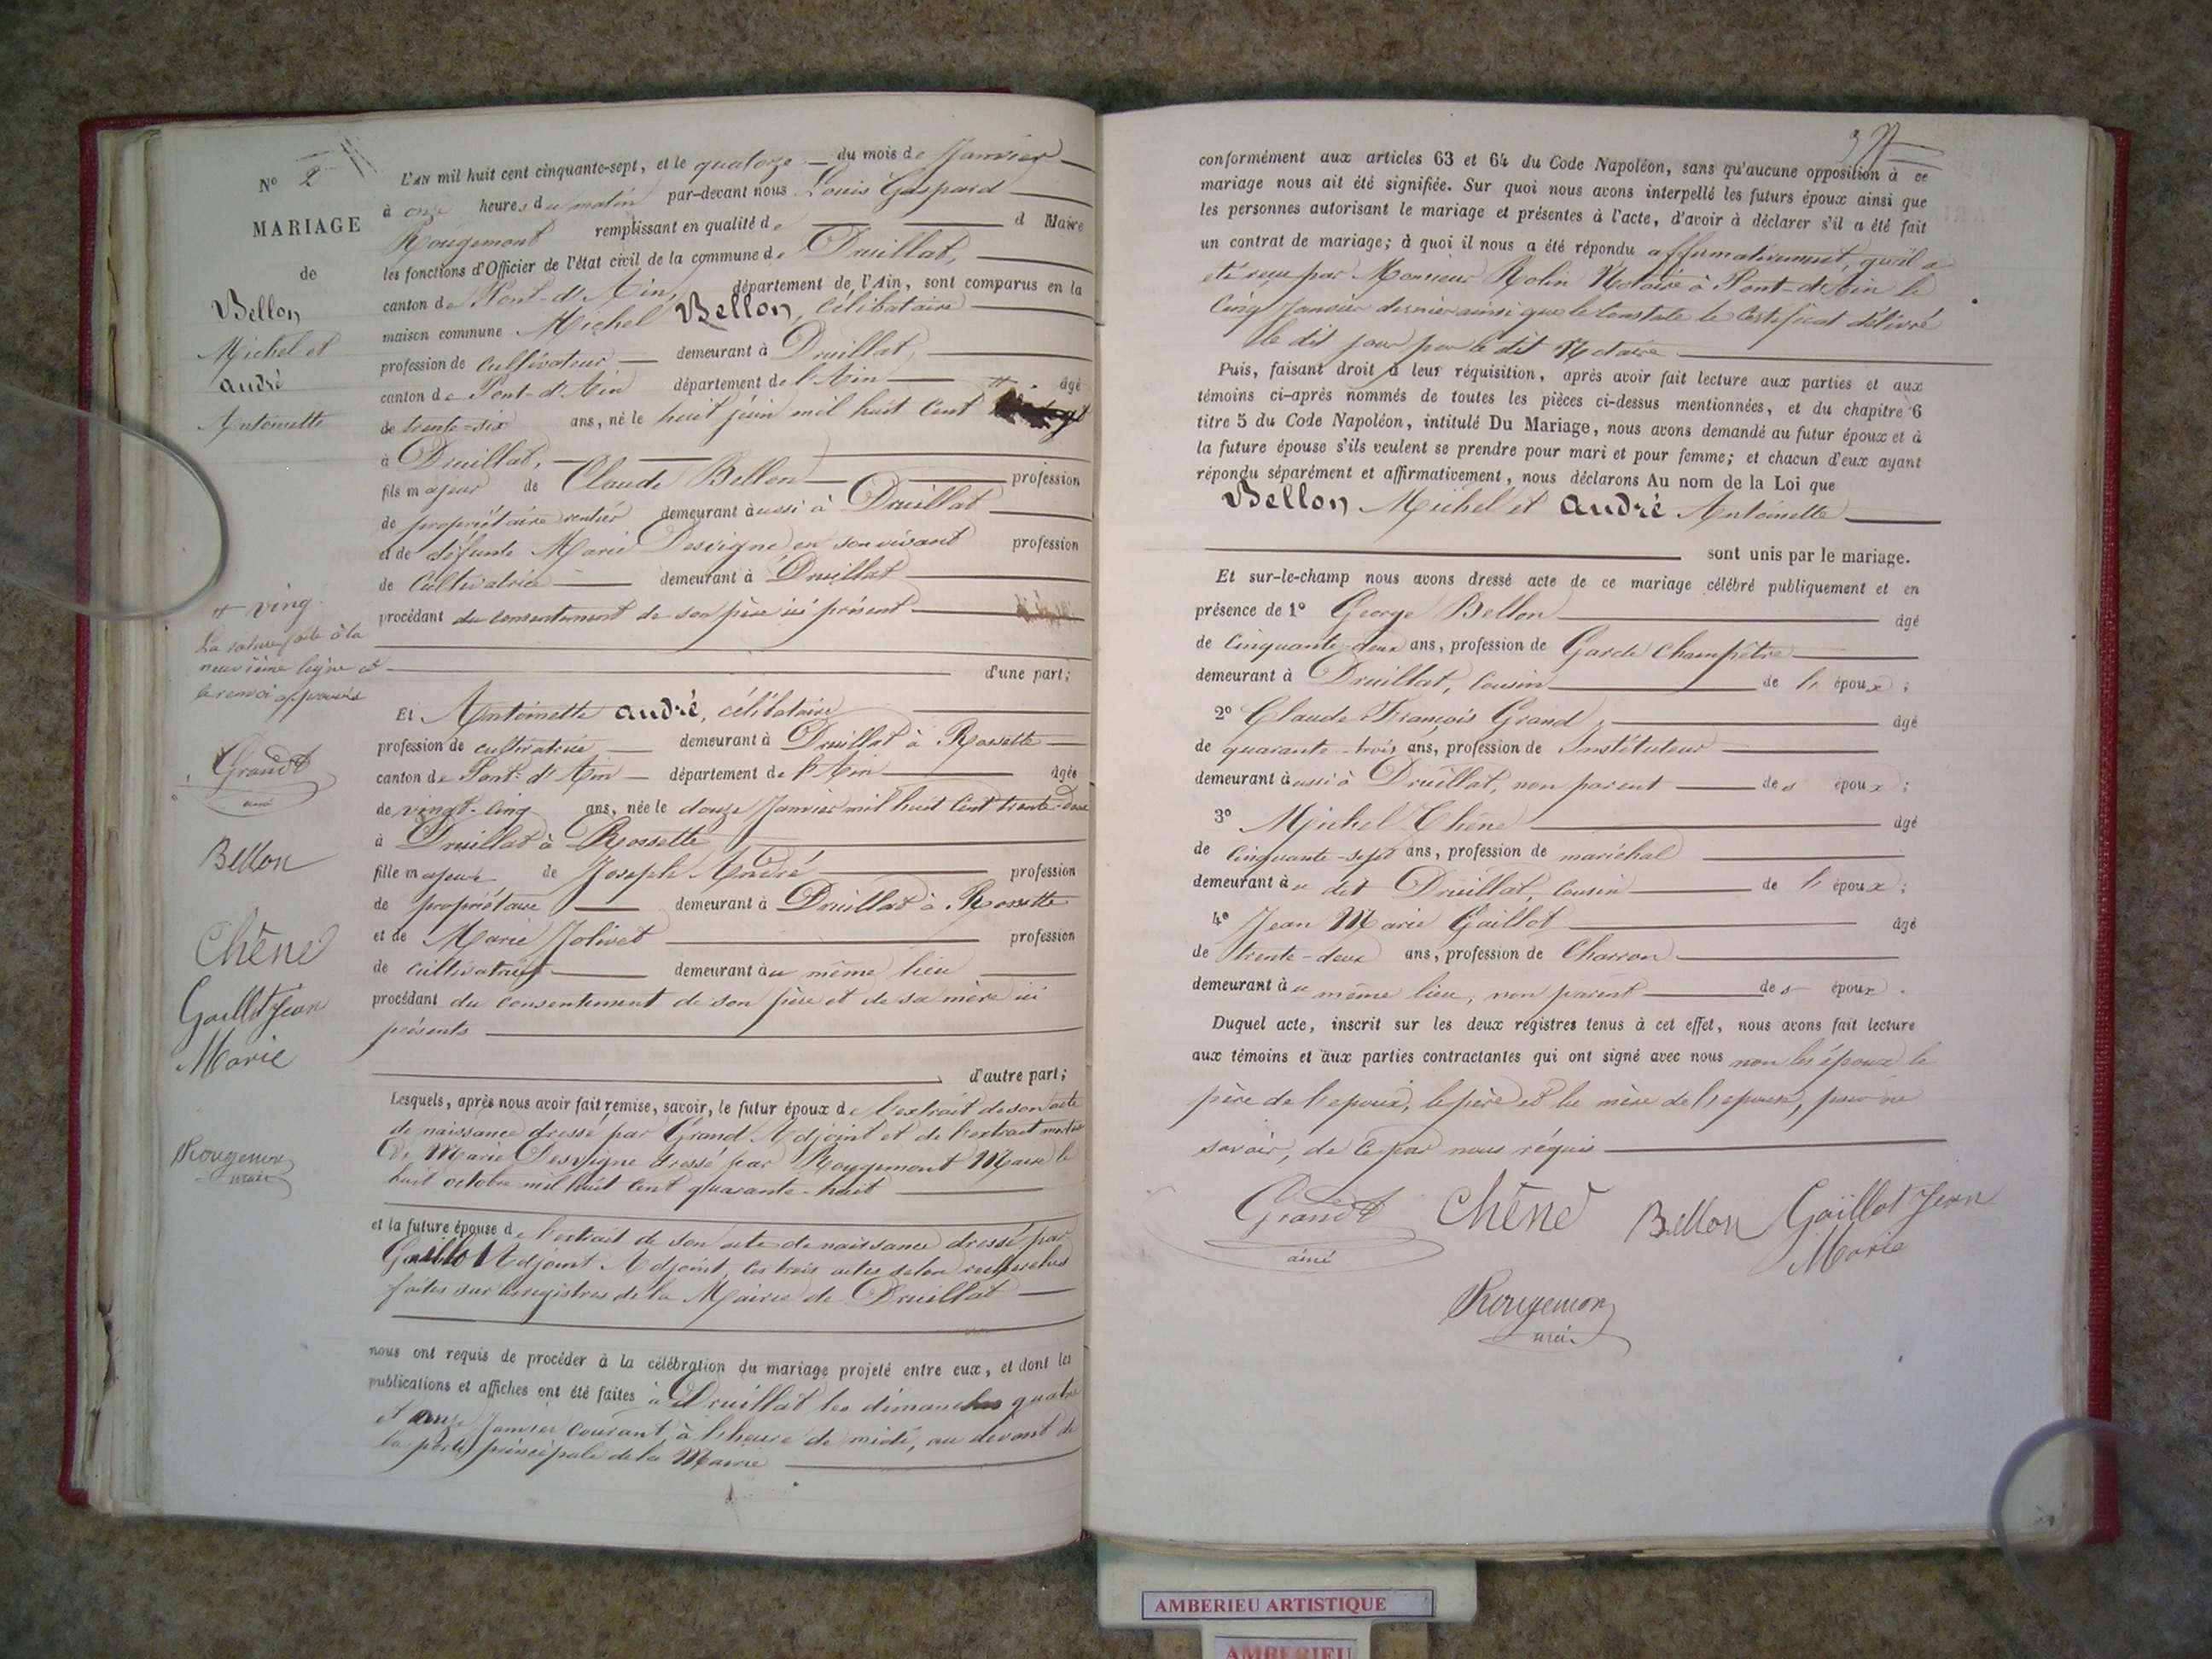 Nº 2
MARIAGE
de
Bellon
Michel et
André
Antoinette
# ving
La rature faite à la
neuvième ligne et
le renvoi approuvés
Grand
ainé
Bellon
Chêne
Gaillot Jean
Marie
Rougemon
maire
L'AN mil huit cent cinquante-sept, et le quatorze du mois de Janvier
à onze heures du matin par-devant nous Louis Gaspard
Rougemont remplissant en qualité de d Maire
les fonctions d'Officier de l'état civil de la commune de Druillat,
canton de Pont-d'Ain, département de l'Ain, sont comparus en la
maison commune Michel Bellon, célibataire
profession de cultivateur demeurant à Druillat,
canton de Pont-d'Ain département de l'Ain # âgé
de trente-six ans, né le huit juin mil huit cent
à Druillat,
fils majeur de Claude Bellon profession
de propriétaire rentier demeurant aussi à Druillat
et de défunte Marie Desvigne en son vivant profession
de cultivatrice demeurant à Druillat
procédant du consentement de son père ici présent
d'une part;
Et Antoinette André, célibataire
profession de cultivatrice demeurant à Druillat à Rossette
canton de Pont-d'Ain département de l'Ain âgée
de vingt-cinq ans, née le douze Janvier mil huit cent trente-deux
à Druillat à Rossette
fille majeure de Joseph André profession
de propriétaire demeurant à Druillat à Rossette
et de Marie Jolivet profession
de cultivatrice demeurant au même lieu
procédant du consentement de son père et de sa mère ici
présents
d'autre part;
Lesquels, après nous avoir fait remise, savoir, le futur époux de l'extrait de son acte
de naissance dressé par Grand Adjoint et de l'extrait mortuaire
de Marie Desvigne dressé par Rougemont Maire le
huit octobre mil huit cent quarante-huit
et la future épouse de l'extrait de son acte de naissance dressé par
Gaillot Adjoint Adjoint, les trois actes selon recherches
faites sur les registres de la Mairie de Druillat
nous ont requis de procéder à la célébration du mariage projeté entre eux, et dont les
publications et affiches ont été faites à Druillat les dimanches quatre
et onze Janvier courant, à l'heure de midi, au devant de
la porte principale de la Mairie
conformément aux articles 63 et 64 du Code Napoléon, sans qu'aucune opposition à ce
mariage nous ait été signifiée. Sur quoi nous avons interpellé les futurs époux ainsi que
les personnes autorisant le mariage et présentes à l'acte, d'avoir à déclarer s'il a été fait
un contrat de mariage; à quoi il nous a été répondu affirmativement, qu'il a
été reçu par Monsieur Rolin Notaire à Pont-d'Ain le
cinq Janvier dernier ainsi que le constate le certificat délivré
le dit jour par le dit Notaire
Puis, faisant droit à leur réquisition, après avoir fait lecture aux parties et aux
témoins ci-après nommés de toutes les pièces ci-dessus mentionnées, et du chapitre 6
titre 5 du Code Napoléon, intitulé Du Mariage, nous avons demandé au futur époux et à
la future épouse s'ils veulent se prendre pour mari et pour femme; et chacun d'eux ayant
répondu séparément et affirmativement, nous déclarons Au nom de la Loi que
Bellon Michel et André Antoinette
sont unis par le mariage.
Et sur-le-champ nous avons dressé acte de ce mariage célébré publiquement et en
présence de 1º George Bellon âgé
de cinquante-deux ans, profession de Garde Champêtre
demeurant à Druillat, cousin de l' époux;
2º Claude François Grand, âgé
de quarante-trois ans, profession de Instituteur
demeurant aussi à Druillat, non parent des époux;
3º Michel Chêne âgé
de cinquante-sept ans, profession de maréchal
demeurant au dit Druillat, cousin de l' époux;
4º Jean Marie Gaillot âgé
de trente-deux ans, profession de Charron
demeurant au même lieu, non parent des époux.
Duquel acte, inscrit sur les deux registres tenus à cet effet, nous avons fait lecture
aux témoins et aux parties contractantes qui ont signé avec nous non les époux le
père de l'époux, le père et la mère de l'épouse, pour ne
savoir, de ce par nous réquis
Grand Chêne Bellon Gaillot Jean
ainé Marie
Rougemon
maire
AMBERIEU ARTISTIQUE
AMBERIEU